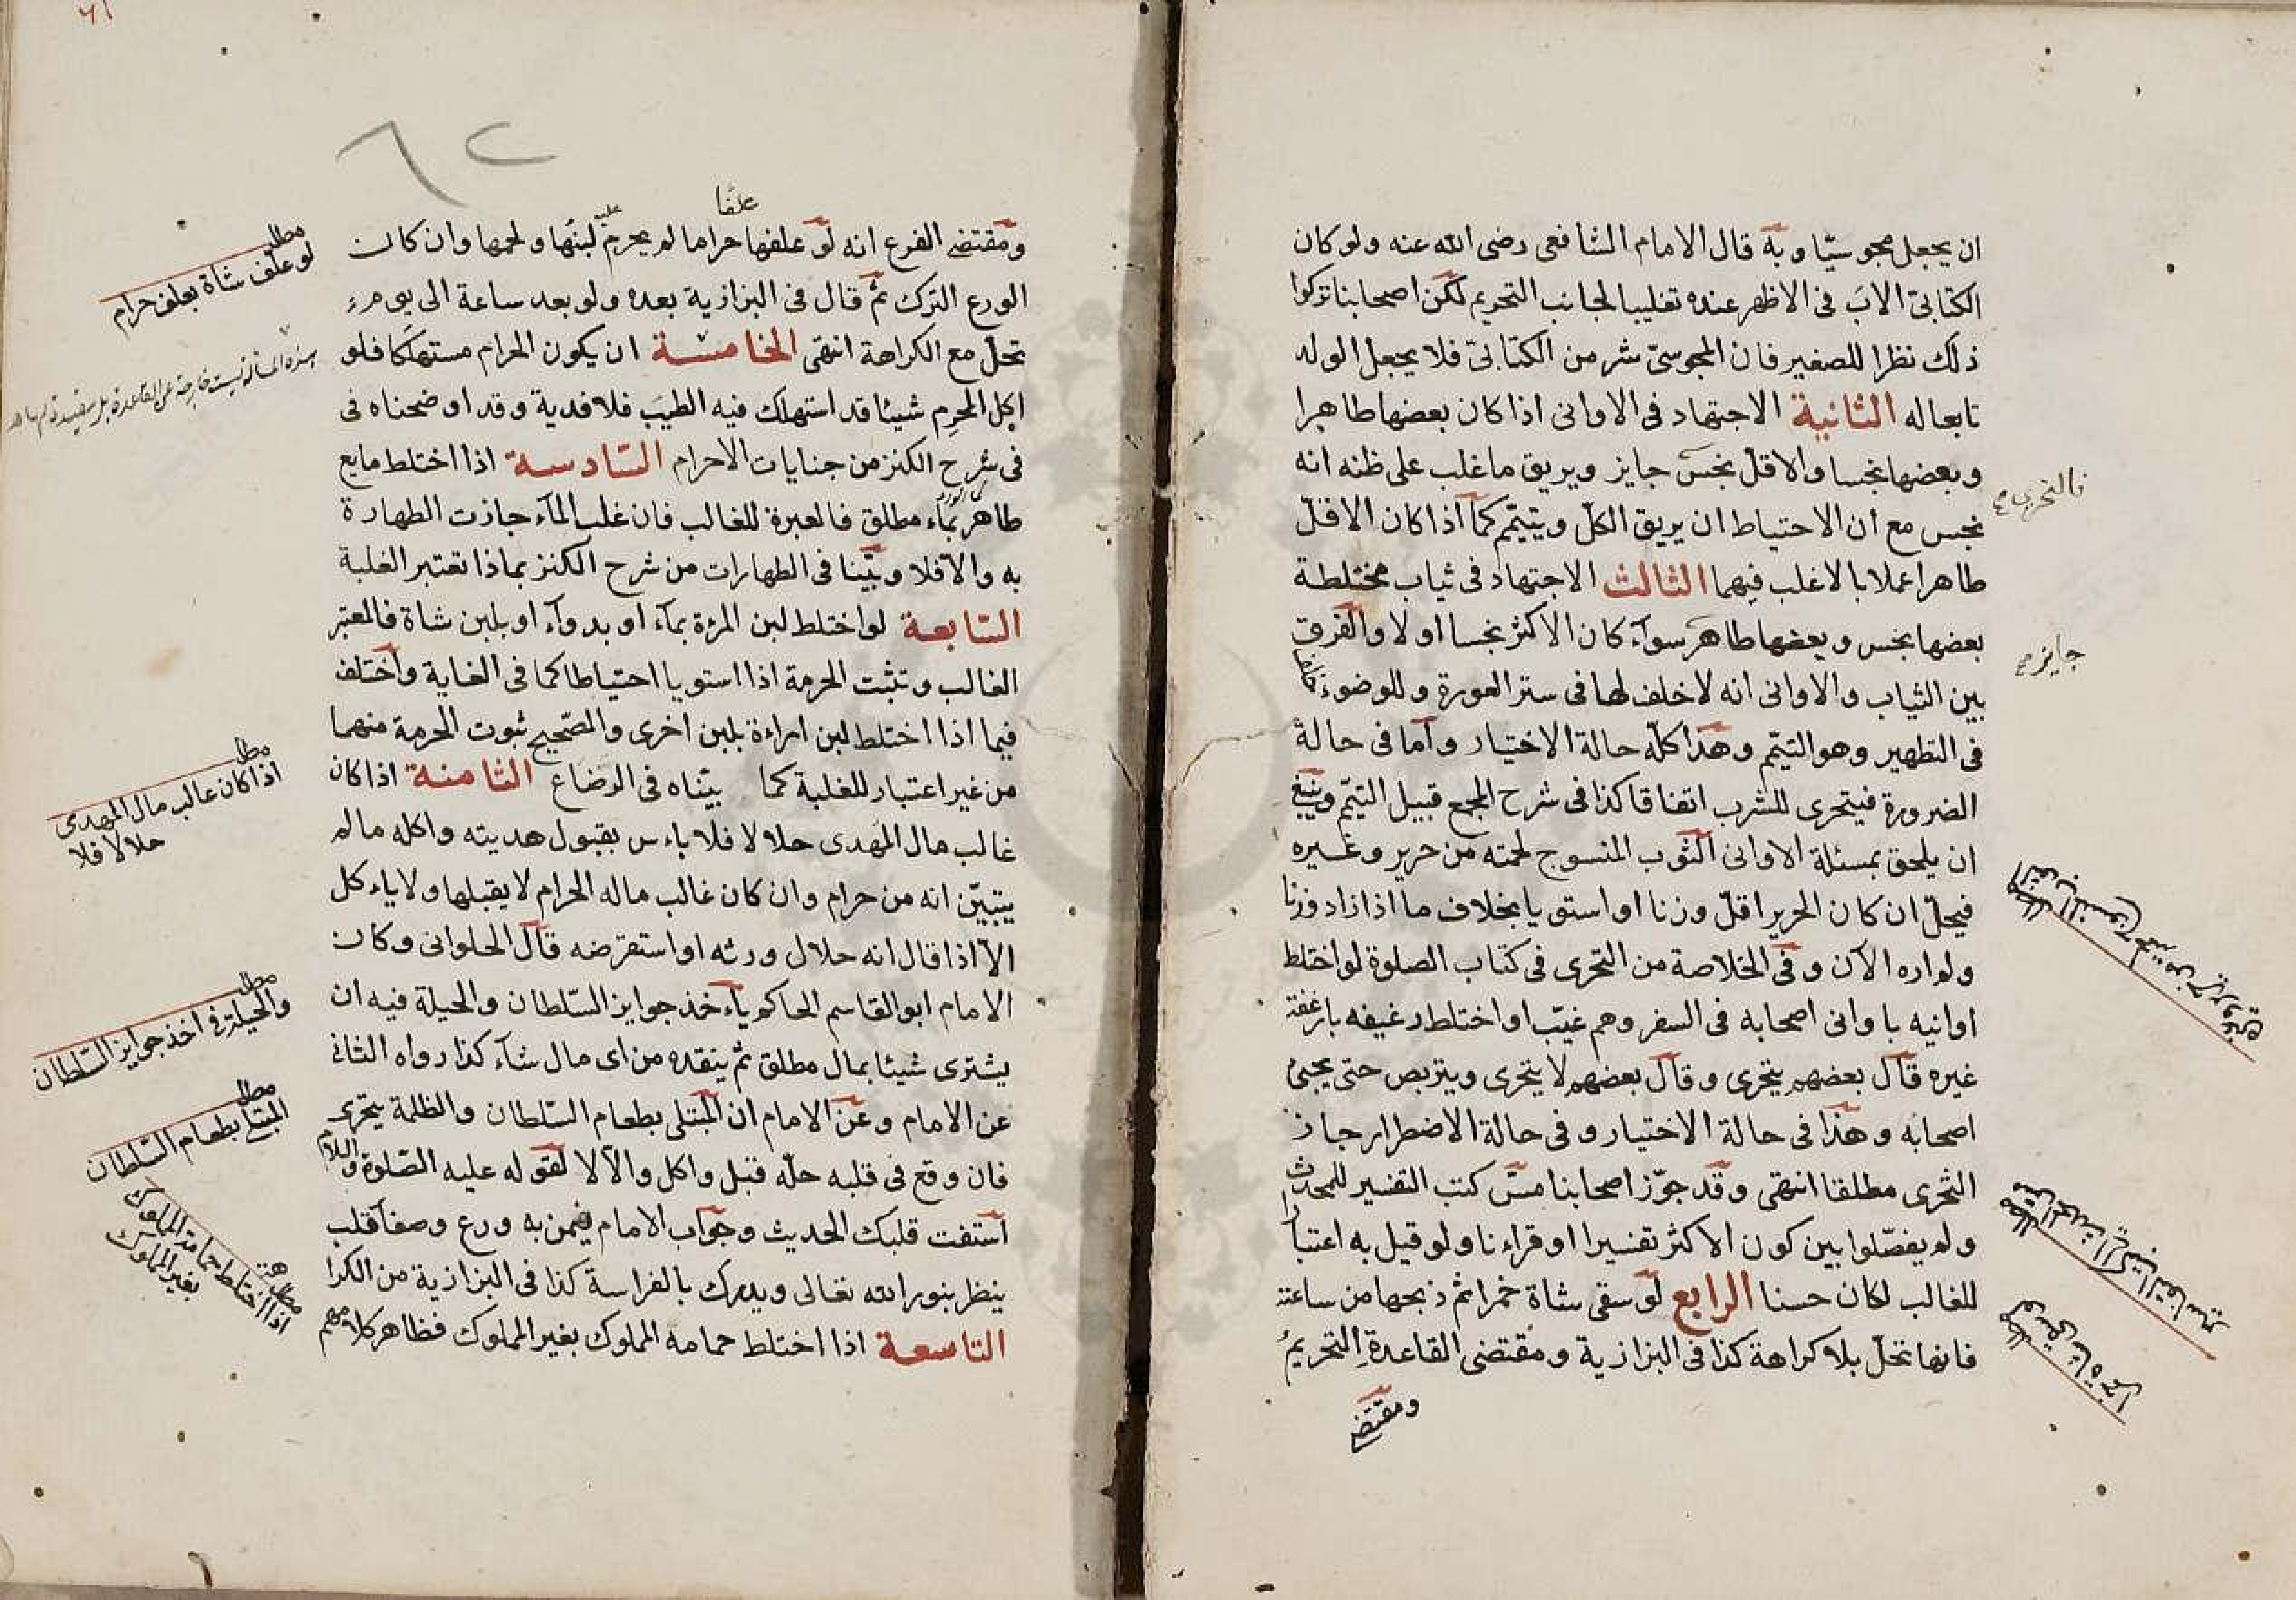 ان يجعل مجوسيّا وبه قال الامام الشافعى رضى الله عنه ولو كان
الكتابىّ الاب فى الاظهر عنده تغليبا لجانب التحريم لكن اصحابنا تركوا
ذلك نظرا للصغير فان المجوسىّ شر من الكتابىّ فلا يجعل الولد
تابعا له الثانية الاجتهاد فى الاوانى اذا كان بعضها طاهرا
وبعضها نجسا والاقل نجس جايز ويريق ما غلب على ظنه انه
نجس مع ان الاحتياط ان يريق الكلّ ويتيمّم كما اذا كان الاقلّ
طاهرا عملا بالاغلب فيهما الثالث الاجتهاد فى ثياب مختلطة
بعضها نجس وبعضها طاهر سوآء كان الاكثر نجسا او لا والفرق
بين الثياب والاوانى انه لا خلف لها فى ستر العورة وللوضوء خلف
فى التطهير وهو التيمّم وهذا كلّه حالة الاختيار وأما فى حالة
الضرورة فيتحرى للشرب اتفاقا كذا فى شرح المجمع قبيل التيمّم وينبغى
ان يلحق بمسئلة الاوانى الثوب المنسوج لحمته من حرير وغيره
فيحلّ ان كان الحرير اقلّ وزنا او استويا بخلاف ما اذا زاد وزنا
ولم اره الآن وفى الخلاصة من التحرى فى كتاب الصلوة لو اختلط
اوانيه باوانى اصحابه فى السفر وهم غيّب او اختلط رغيفه بارغفة
غيره قال بعضهم يتحرى وقال بعضهم لا يتحرى ويتربص حتى يجئ
اصحابه وهذا فى حالة الاختيار وفى حالة الاضطرار جاز
التحرى مطلقا انتهى وقد جوّز اصحابنا مسّ كتب التفسير للمحدث
ولم يفصّلوا بين كون الاكثر تفسيرا او قراءنا ولو قيل به اعتبارا
للغالب لكان حسنا الرابع لو سقى شاة خمرا ثم ذبحها من ساعته
فانها تحلّ بلا كراهة كذا فى البزازية ومقتضى القاعدة التحريم
ومقتضى
جايز صح
ومقتضى الفرع انه لو علفها حراما لم يحرم لبنها ولحمها وان كان
علفا
الورع الترك ثم قال فى البزازية بعده ولو بعد ساعة الى يوم
تحلّ مع الكراهة انتهى الخامسة ان يكون الحرام مستهلكا فلو
اكل المحرم شيئا قد استهلك فيه الطيب فلا فدية وقد اوضحناه فى
فى شرح الكنز من جنايات الاحرام السّادسة اذا اختلط مايع
طاهر بماء مطلق فالعبرة للغالب فان غلب المآء جازت الطهارة
به والا فلا وبيّنا فى الطهارات من شرح الكنز بماذا تعتبر الغلبة
السّابعة لو اختلط لبن المرءة بمآء او بدوآء او بلبن شاة فالمعتبر
الغالب وتثبت الحرمة اذا استويا احتياطا كما فى الغاية واختلف
فيما اذا اختلط لبن امراءة بلبن اخرى والصّحيح ثبوت الحرمة منهما
من غير اعتبار للغلبة كما بيّناه فى الرضاع الثامنة اذا كان
غالب مال المهدى حلالا فلا باءس بقبول هديته واكله ما لم
يتبيّن انه من حرام وان كان غالب ماله الحرام لا يقبلها ولا ياءكل
الا اذا قال انه حلال ورثه او استقرضه قال الحلوانى وكان
الامام ابو القاسم الحاكم ياءخذ جوايز السّلطان والحيلة فيه ان
يشترى شيئا بمال مطلق ثم ينقده من اى مال شآء كذا رواه الثانى
عن الامام وعن الامام ان المبتلى بطعام السّلطان والظلمة يتحرى
فان وقع فى قلبه حلّه قبل واكل والا لا لقوله عليه الصّلوة والسّلام
استفت قلبك الحديث وجواب الامام فيمن به ورع وصفآء قلب
ينظر بنور الله تعالى ويدرك بالفراسة كذا فى البزازية من الكرا
التاسعة اذا اختلط حمامه المملوك بغير المملوك فظاهر كلامهم
مطلب لو علف شاة بعلف حرام
مطلب اذا كان غالب مال المهدى
حلالا فلا
مطلب والحيلة فى اخذ جوايز السّلطان
مطلب المبتلى بطعام السّلطان
مطلب اذا اختلط حمامة المملوك
بغير المملوك
٦٢